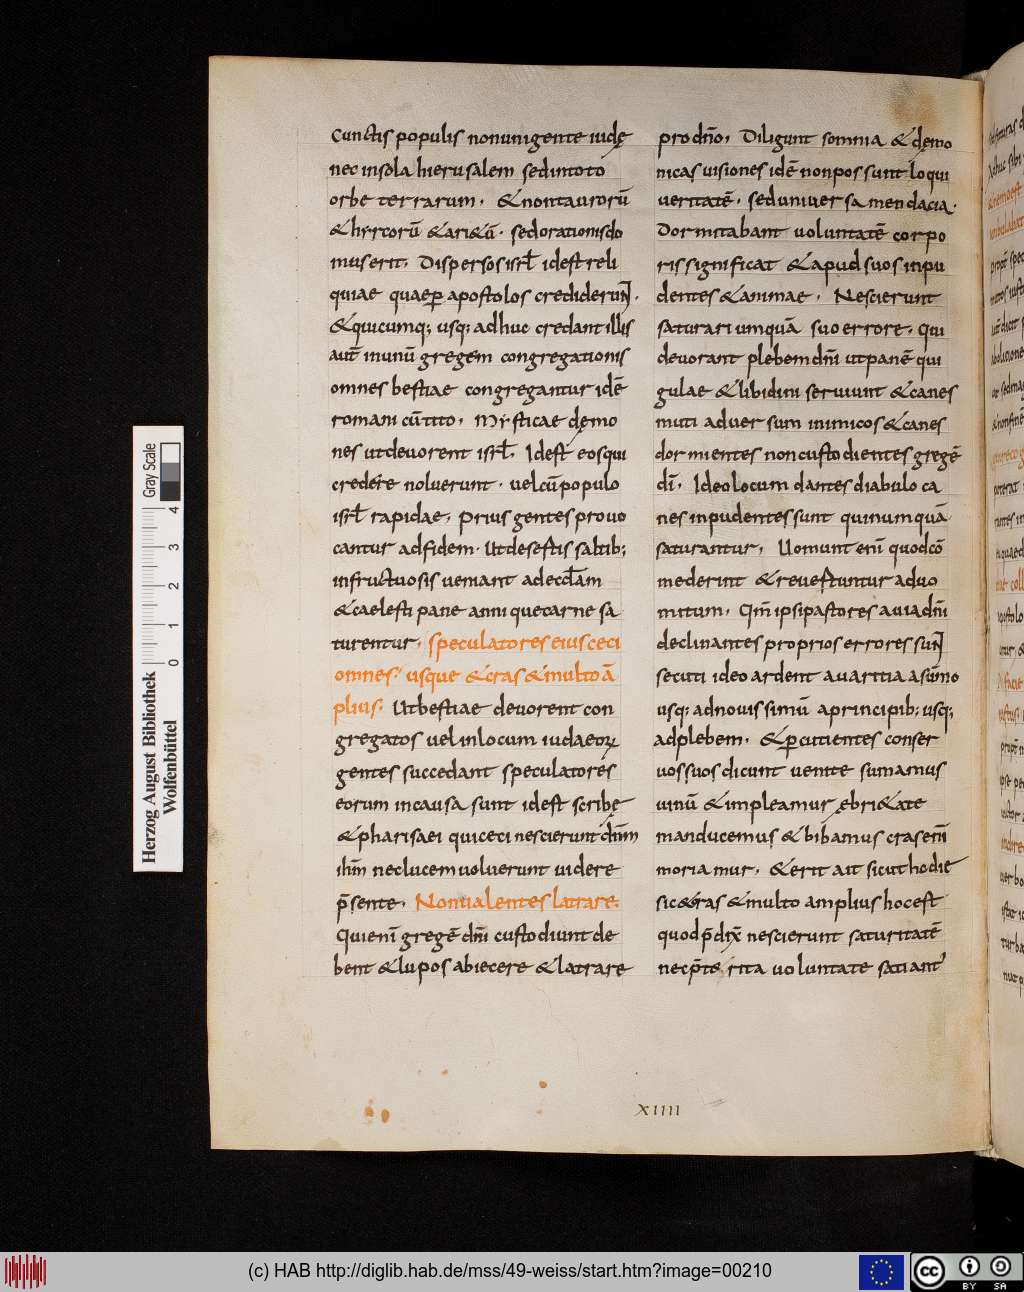 cunctis populis non uni gente iudę
nec in sola hierusalem sed in toto
orbe terrarum. & non taurorū
& hyrcorū & ari&ū. sed orationis do
mus erit. Dispersos isrł id est reli
quiae quae ꝑ apostolos crediderunt.
& quicumq; usq; adhuc credant illis
aut̄ in unū gregem congregationis
omnes bestiae congregantur idē
romani cū tito. Mysticae dęmo
nes ut devorent isrł. Id est eos qui
credere noluerunt. vel cū populo
isrł rapidae. Prius gentes provo
cantur ad fidem. Ut desestis saltib;
infructuosis veniant ad eccłam
& caelesti pane anni que carne sa
turentur. speculatores eius ceci
omnes. usque & cras & in multo ā
plius. Ut bestiae devorent con
gregatos vel in locum iudaeoꝝ
gentes succedant speculatores
eorum in causa sunt id est scribę
& pharisaei qui ceci nescierunt dn̄m
ihm̄ nec lucem voluerunt videre
p̄sente. Non valentes latrare.
Qui enī gregē dn̄i custodiunt de
bent & lupos abiecere & latrare
pro dn̄o. Diligunt somnia & dęmo
nicas visiones idē non possunt loqui
veritatē. sed universa mendacia.
Dormitabant voluntatē corpo
ris significat & apud suos inpu
dentes & animae. Nescierunt
saturari umquā suo errore. Qui
devorant plebem dn̄i ut panē qui
gulae & libidini serviunt & canes
muti adversum inimicos & canes
dormientes non custodientes gregē
dī. Ideo locum dantes diabulo ca
nes inpudentes sunt qui numquā
saturantur. Vomunt enī quod cō
mederint & revestuntur ad vo
mitum. Qm̄ ipsi pastores a via dn̄i
declinantes proprios errores sunt
secuti ideo ardent avaritia a sūmo
usq; ad novissimū a principib; usq;
ad plebem. & ꝑcutientes conser
vos suos dicunt venite sumamus
vinū & impleamur ębri&ate
manducemus & bibamus cras enī
moriamur. & erit ait sicut hodie
sic & cras & in multo amplius hoc est
quod p̄dix̄ nescierunt saturitatē
nec p̄terita voluntate satiant'
XIIII
Gray Scale
0 1 2 3 4
Herzog August Bibliothek
Wolfenbüttel
(c) HAB http://diglib.hab.de/mss/49-weiss/start.htm?image=00210
cc
BY SA